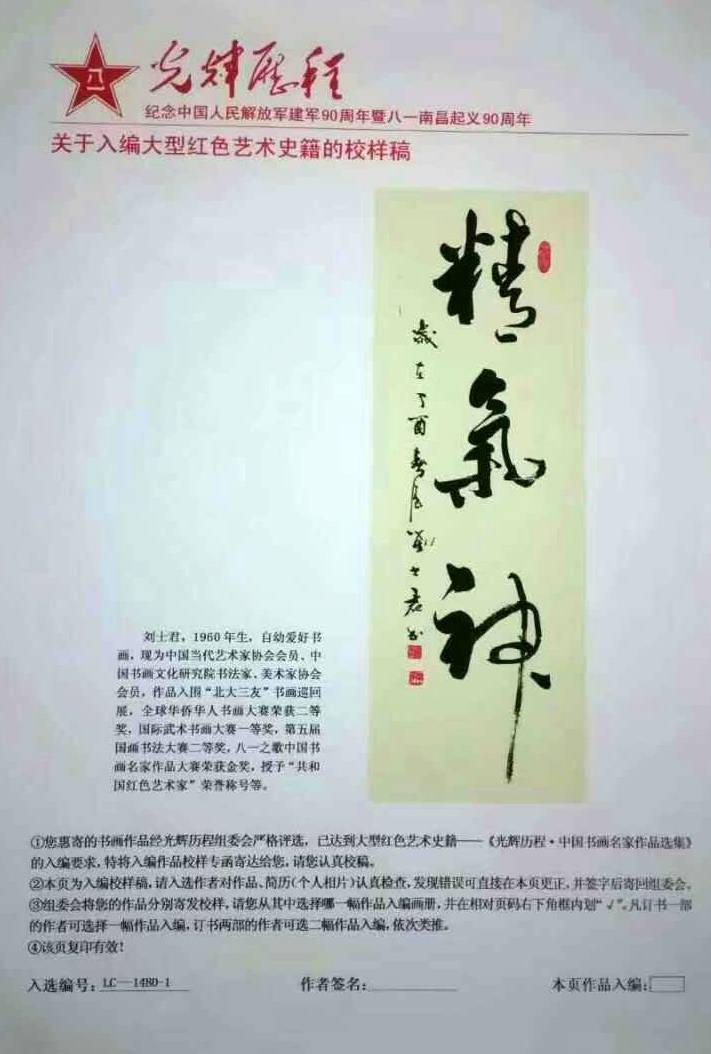 八一
光辉历程
纪念中国人民解放军建军90周年暨八一南昌起义90周年
关于入编大型红色艺术史籍的校样稿
精氣神
歲在丁酉春月劉士君書
刘士君，1960年生，自幼爱好书
画，现为中国当代艺术家协会会员、中
国书画文化研究院书法家、美术家协会
会员，作品入围“北大三友”书画巡回
展，全球华侨华人书画大赛荣获二等
奖，国际武术书画大赛一等奖，第五届
国画书法大赛二等奖，八一之歌中国书
画名家作品大赛荣获金奖，授予“共和
国红色艺术家”荣誉称号等。
①您惠寄的书画作品经光辉历程组委会严格评选，已达到大型红色艺术史籍——《光辉历程·中国书画名家作品选集》
的入编要求，特将入编作品校样专函寄达给您，请您认真校稿。
②本页为入编校样稿，请入选作者对作品、简历(个人相片)认真检查，发现错误可直接在本页更正，并签字后寄回组委会。
③组委会将您的作品分别寄发校样，请您从其中选择哪一幅作品入编画册，并在相对页码右下角框内划“√”。凡订书一部
的作者可选择一幅作品入编，订书两部的作者可选二幅作品入编，依次类推。
④该页复印有效！
入选编号：LC—1480-1 作者签名： 本页作品入编：